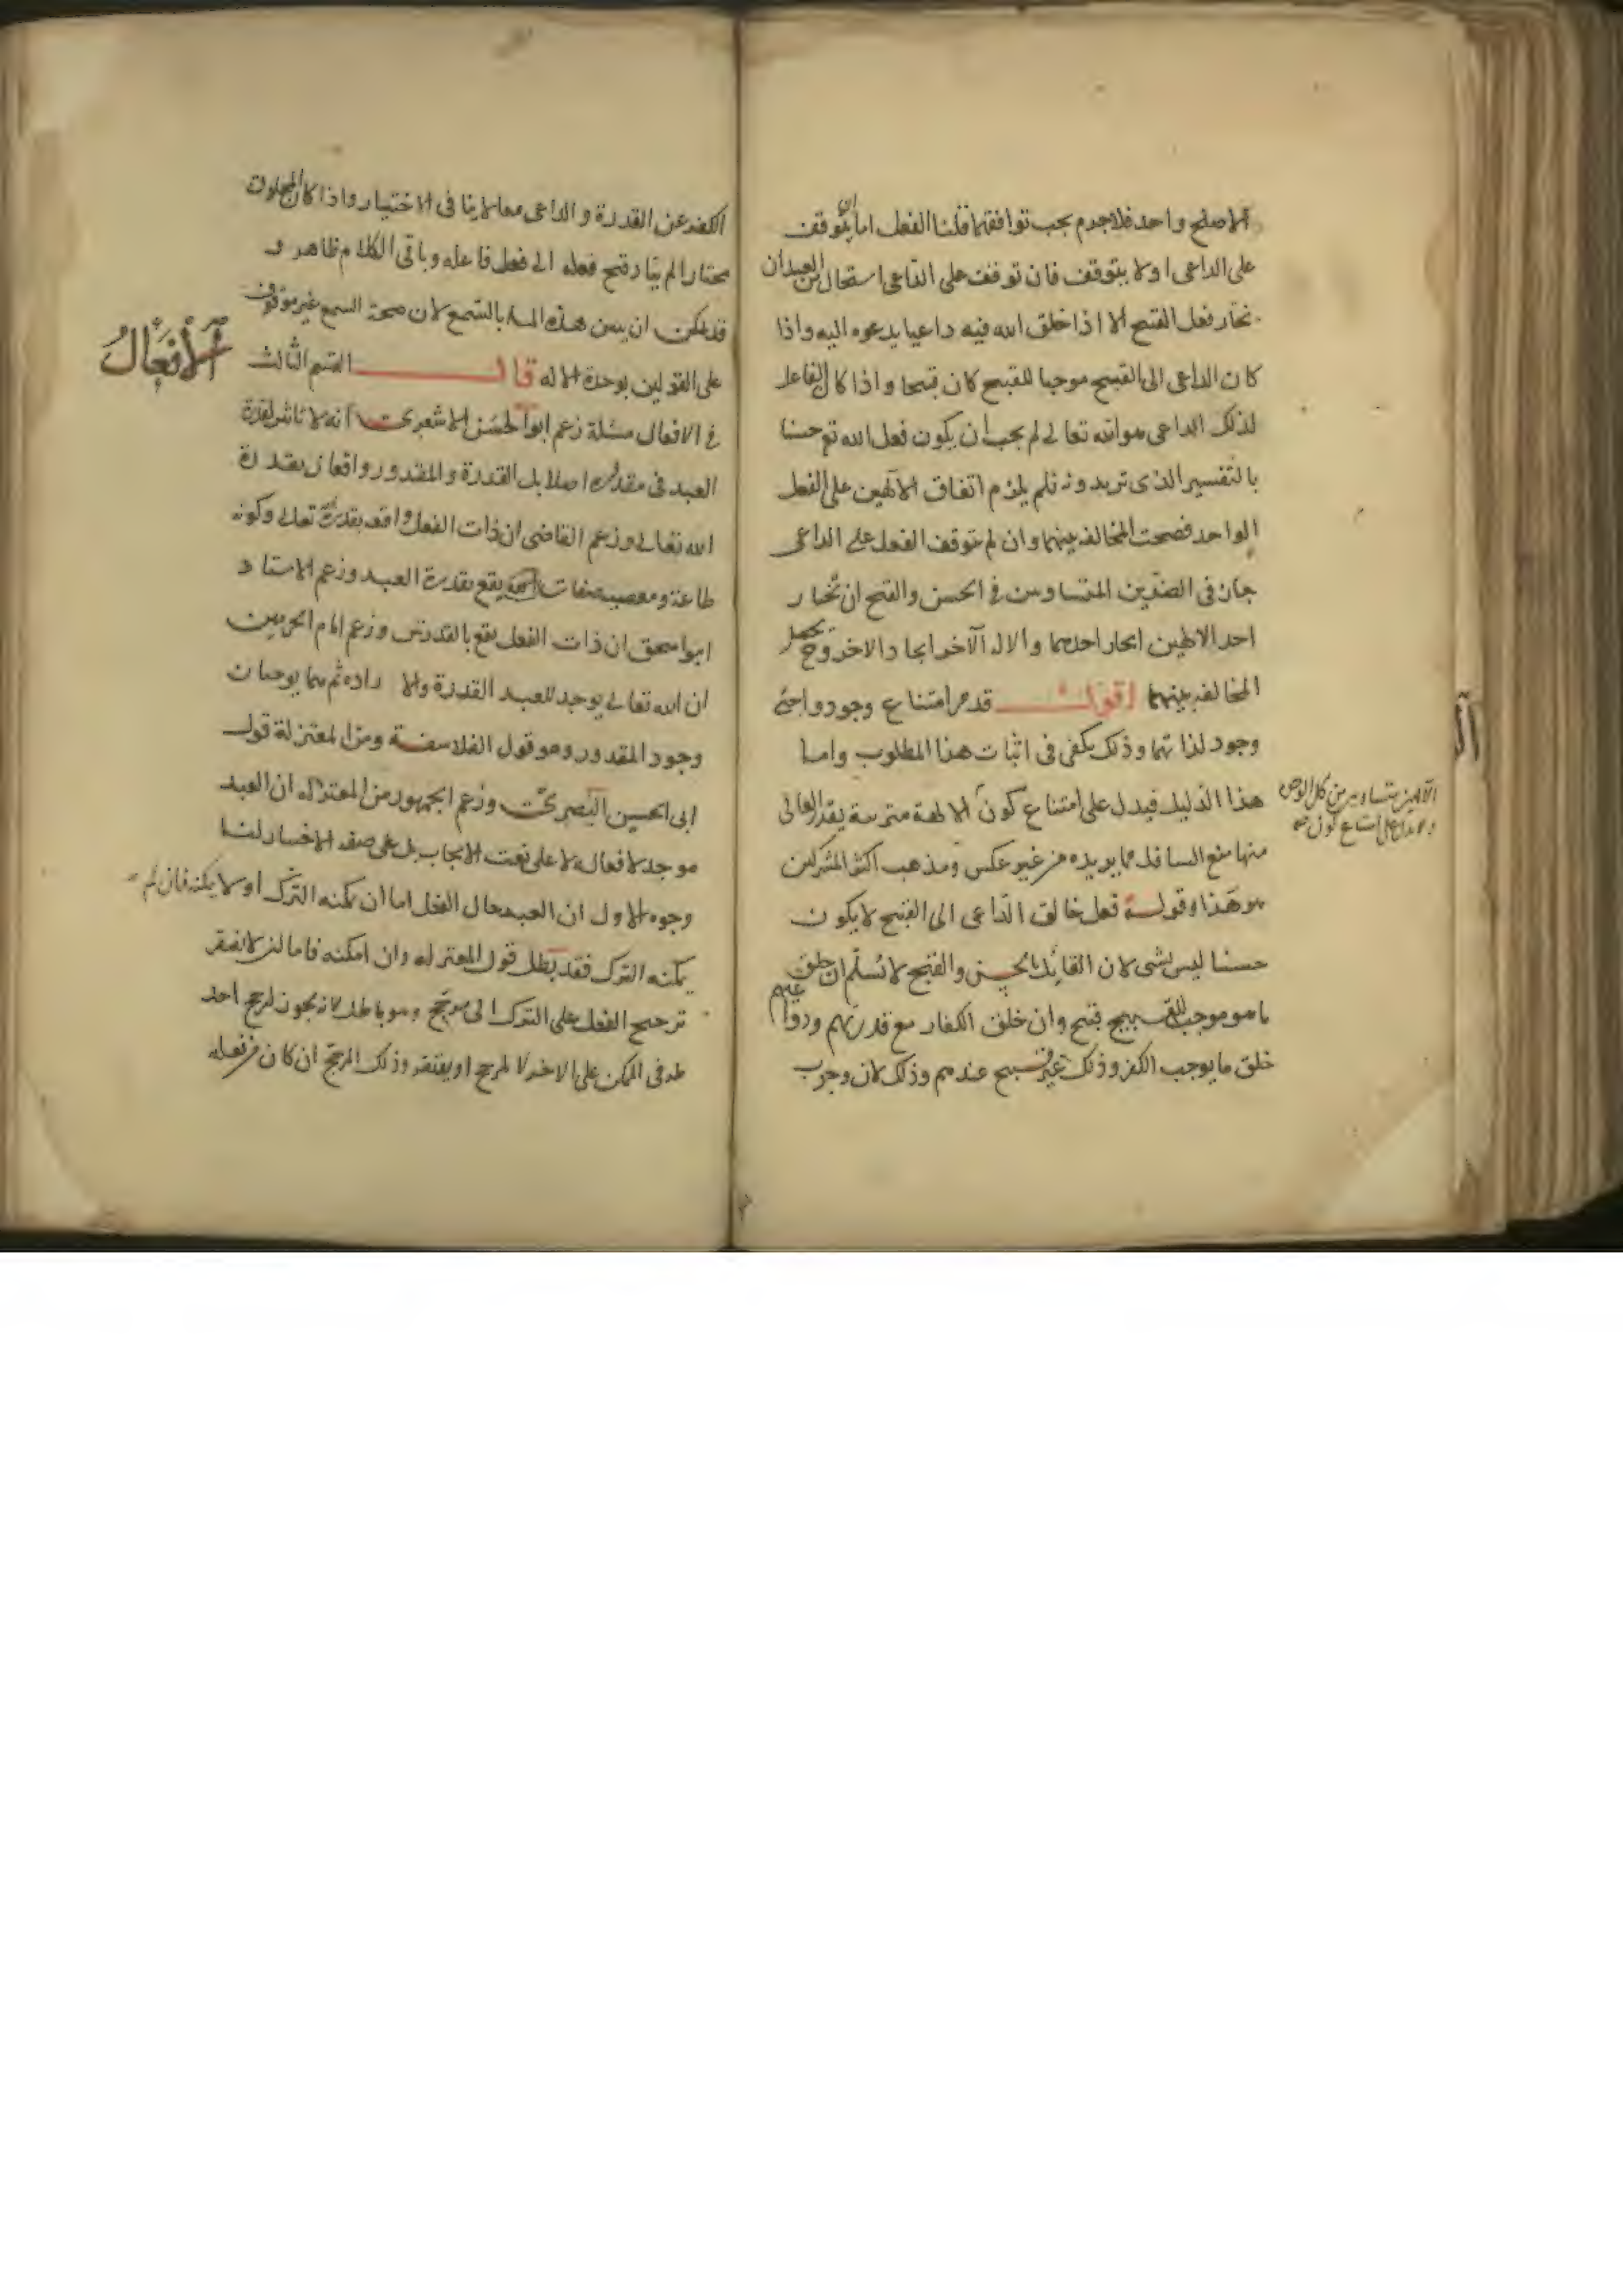 الاصلح واحد فلا جرم يجب توافقهما قلنا الفعل اما ان يتوقف
على الداعى او لا يتوقف فان توقف على الداعى استحال من العبد ان
يختار فعل القبيح الا اذا خلق الله فيه داعيا يدعوه اليه واذا
كان الداعى الى القبيح موجبا للقبيح كان قبيحا واذا كان الفاعل
لذلك الداعى هو الله تعالى لم يجب ان يكون فعل الله تع حسنا
بالتفسير الذى تريدونه فلم يلزم اتفاق الالهين على الفعل
الواحد فصحت المخالفة بينهما وان لم يتوقف الفعل على الداعى
جاز فى الضدين المتساويين فى الحسن والقبح ان يختار
احد الالهين ايجاد احدهما والاله الآخر ايجاد الاخر وح يحصل
المخالفة بينهما اقول قد مر امتناع وجود واجبى
وجود لذاتهما وذلك يكفى فى اثبات هذا المطلوب واما
هذا الدليل فيدل على امتناع كون
الالهين متساويين من كل الوجوه
ولا يدل على امتناع كون
الالهة مترتبة يقدر العالى
منها منع السافل مما يريده من غير عكس ومذهب اكثر المشركين
هو هذا وقوله فعل خالق الداعى الى القبيح لا يكون
حسنا ليس بشى لان القائل بالحسن والقبح لا يسلم ان خلق
ما هو موجب للقبيح قبيح وان خلق الكفار مع قدرتهم ودواعيهم
خلق ما يوجب الكفر وذلك غير قبيح عندهم وذلك لان وجوب
الكفر عن القدرة والداعى معا لا ينافى الاختيار واذا كان المخلوق
مختارا لم يتأد قبح فعله الى فعل فاعله وباقى الكلام ظاهر و
قد يمكن ان يبين هذه المسألة بالسمع لان صحة السمع غير موقوف
على القولين بوحدة الاله قال القسم الثالث
الأفعال
فى الافعال مسئلة زعم ابو الحسن الاشعرى انه لا تاثير لقدرة
العبد فى مقدوره اصلا بل القدرة والمقدور واقعان بقدرة
الله تعالى وزعم القاضى ان ذات الفعل واقعه بقدرة الله تعالى وكونه
طاعة ومعصية صفات يقع بقدرة العبد وزعم الاستاد
ابو اسحق ان ذات الفعل يقع بالقدرتين وزعم امام الحرمين
ان الله تعالى يوجد للعبد القدرة والارادة ثم هما يوجبان
وجود المقدور وهو قول الفلاسفة ومن المعتزلة قول
ابى الحسين البصرى وزعم الجمهور من المعتزلة ان العبد
موجد لافعاله لا على نعت الايجاب بل على صفة الاختيار لنا
وجوه الاول ان العبد حال الفعل اما ان يمكنه الترك او لا يمكنه فان لم
يمكنه الترك فقد بطل قول المعتزلة وان امكنه فاما ان لا يفتقر
ترجيح الفعل على الترك الى مرجح وهو باطل لانه تجويز لترجيح احد
طرفى الممكن على الاخر لا لمرجح او يفتقر وذلك المرجح ان كان من فعله